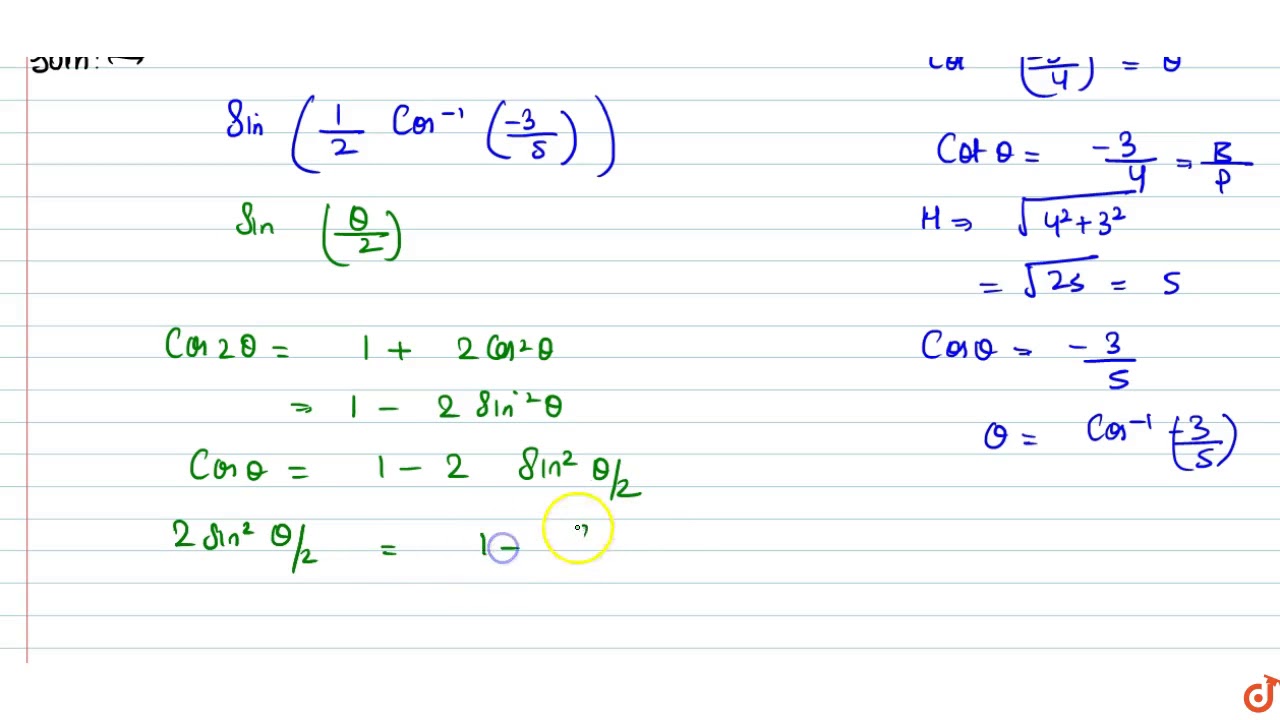 Soln: →
Sin (1/2 Cos⁻¹ (-3/5))
Sin (θ/2)
Cos 2θ = 1 + 2 Cos² θ
⇒ 1 - 2 Sin² θ
Cos θ = 1 - 2 Sin² θ/2
2 Sin² θ/2 = 1 -
Cot θ = -3/4 ⇒ B/P
H ⇒ √4² + 3²
= √25 = 5
Cos θ = -3/5
θ = Cos⁻¹ (-3/5)